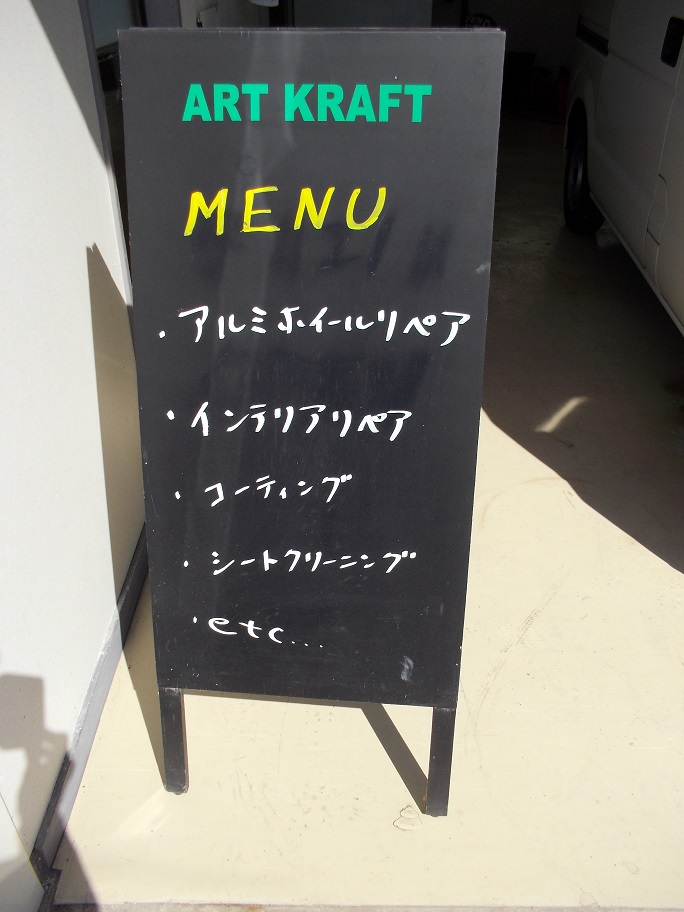 ART KRAFT
MENU
・アルミホイールリペア
・インテリアリペア
・コーティング
・シートクリーニング
・etc...